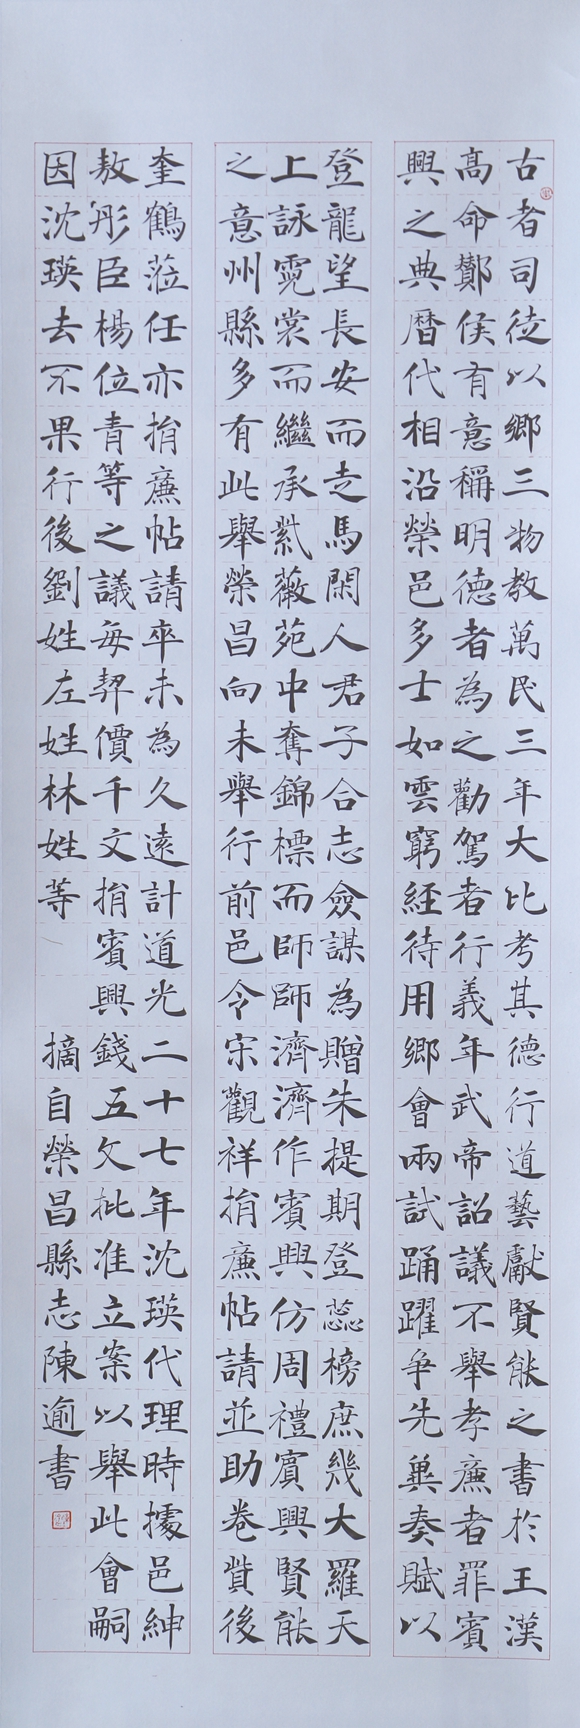 古者司徒以鄉三物教萬民三年大比考其德行道藝獻賢能之書於王漢
高命酇侯有意稱明德者為之勸駕者行義年武帝詔議不舉孝廉者罪賓
興之典曆代相沿榮邑多士如雲窮經待用鄉會兩試踊躍爭先冀奏賦以
登龍望長安而走馬閑人君子合志僉謀為贈朱提期登蕊榜庶幾大羅天
上詠霓裳而繼承紫薇苑中奪錦標而師師濟濟作賓興仿周禮賓興賢能
之意州縣多有此舉榮昌向未舉行前邑令宋觀祥捐廉帖請並助卷貲後
奎鶴蒞任亦捐廉帖請卒未為久遠計道光二十七年沈瑛代理時據邑紳
敖彤臣楊位青等之議每契價千文捐賓興錢五文批准立案以舉此會嗣
因沈瑛去不果行後劉姓左姓林姓等 摘自榮昌縣志陳逾書